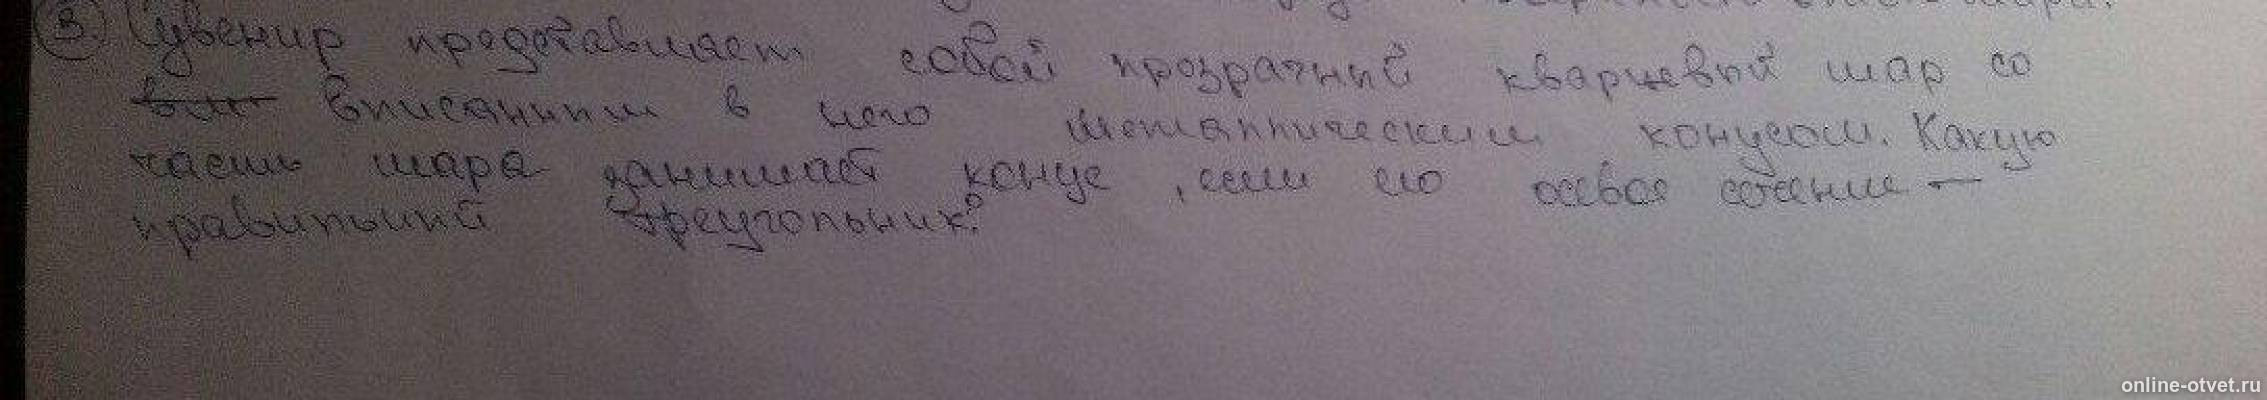 3. Сувенир представляет собой прозрачный кварцевый шар со
вписанным в него металлическим конусом. Какую
часть шара занимает конус, если его осевое сечение —
правильный треугольник?
online-otvet.ru